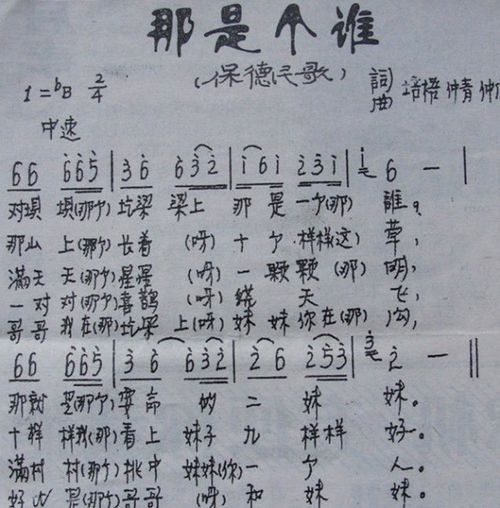 那是个谁
(保德民歌)
詞 培梧 仲青 仲
曲
1=bB 2/4
中速
66 665 | 36 632 | 161 231 | i 6 — |
对垻 垻(那个)圪梁 梁上 那是 一个(那) 誰。
那山 上(那个)长着 (呀)十个 样样(这) 草,
滿天 天(那个)星星 (呀)一颗 颗(那) 明,
一对 对(那个)喜鹊 (呀)绕 天 飞,
哥哥 我在(那)圪梁 上(呀)妹 妹你在(那) 沟,
66 665 | 36 632 | 26 253 | 3 2 — ‖
那就 是(那个)要命 的二 妹 妹。
十样 样我(那)看上 妹子九 样样 好。
滿村 村(那个)挑中 妹妹(你)一 个 人。
好比 是(那个)哥哥 (呀)和 妹 妹。